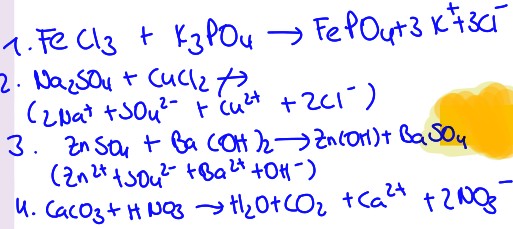 1. FeCl3 + K3PO4 → FePO4+3 K⁺+3Cl⁻
2. Na2SO4 + CuCl2 ↛
(2Na⁺ + SO4²⁻ + Cu²⁺ + 2Cl⁻)
3. ZnSO4 + Ba(OH)2 → Zn(OH) + BaSO4
(Zn²⁺ + SO4²⁻ + Ba²⁺ + OH⁻)
4. CaCO3 + HNO3 → H2O + CO2 + Ca²⁺ + 2NO3⁻